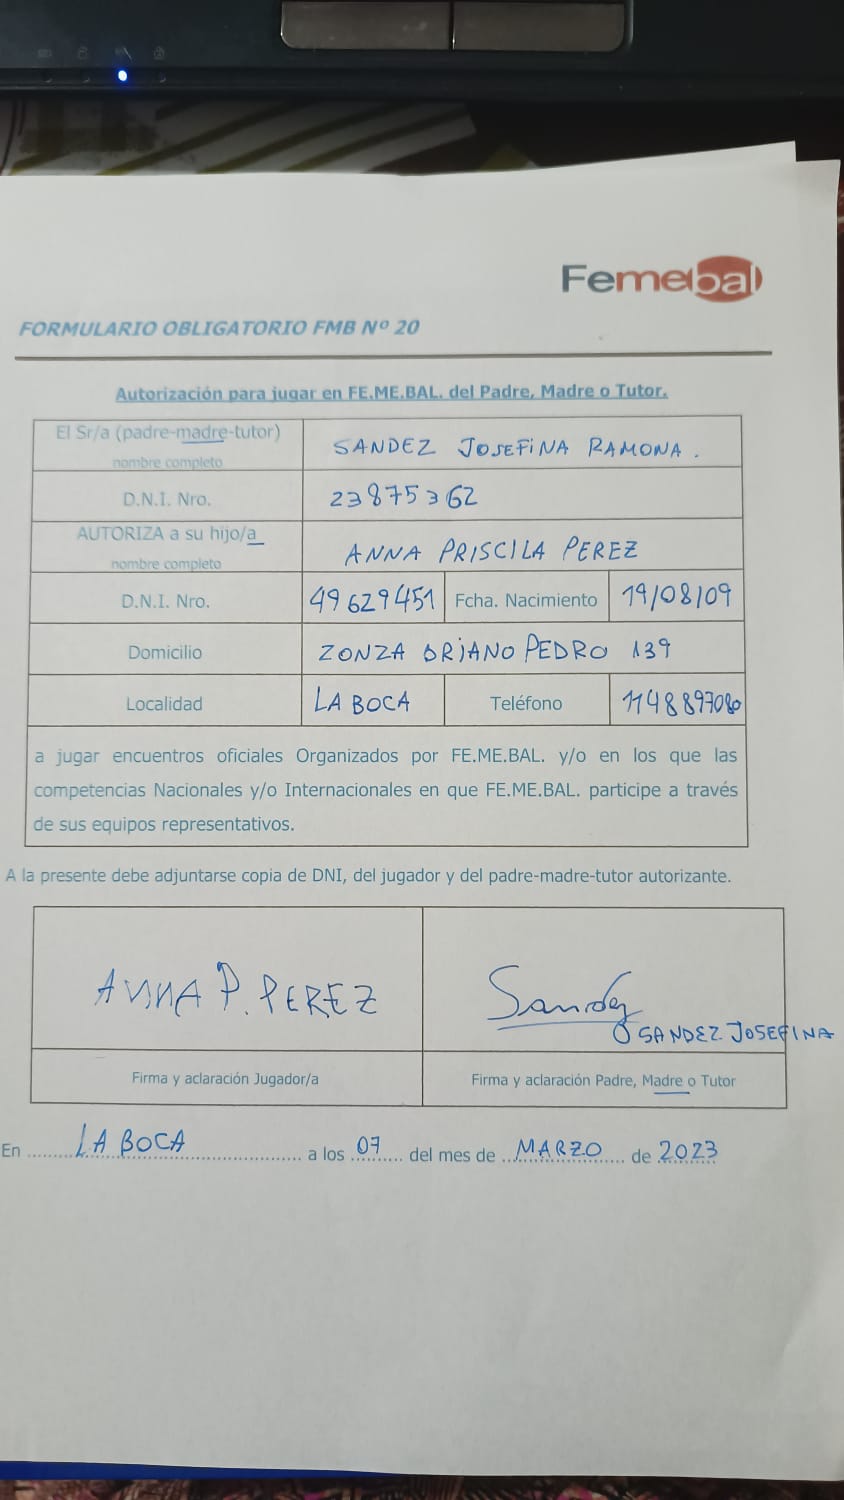 Femebal
FORMULARIO OBLIGATORIO FMB Nº 20
Autorización para jugar en FE.ME.BAL. del Padre, Madre o Tutor.
El Sr/a (padre-madre-tutor)
nombre completo
SANDEZ JOSEFINA RAMONA.
D.N.I. Nro.
23875362
AUTORIZA a su hijo/a
nombre completo
ANNA PRISCILA PEREZ
D.N.I. Nro. 49629451 Fcha. Nacimiento 19/08/09
Domicilio ZONZA BRIANO PEDRO 139
Localidad LA BOCA Teléfono 1148897080
a jugar encuentros oficiales Organizados por FE.ME.BAL. y/o en los que las
competencias Nacionales y/o Internacionales en que FE.ME.BAL. participe a través
de sus equipos representativos.
A la presente debe adjuntarse copia de DNI, del jugador y del padre-madre-tutor autorizante.
ANNA P. PEREZ
Sandez
SANDEZ JOSEFINA
Firma y aclaración Jugador/a
Firma y aclaración Padre, Madre o Tutor
En LA BOCA a los 07 del mes de MARZO de 2023